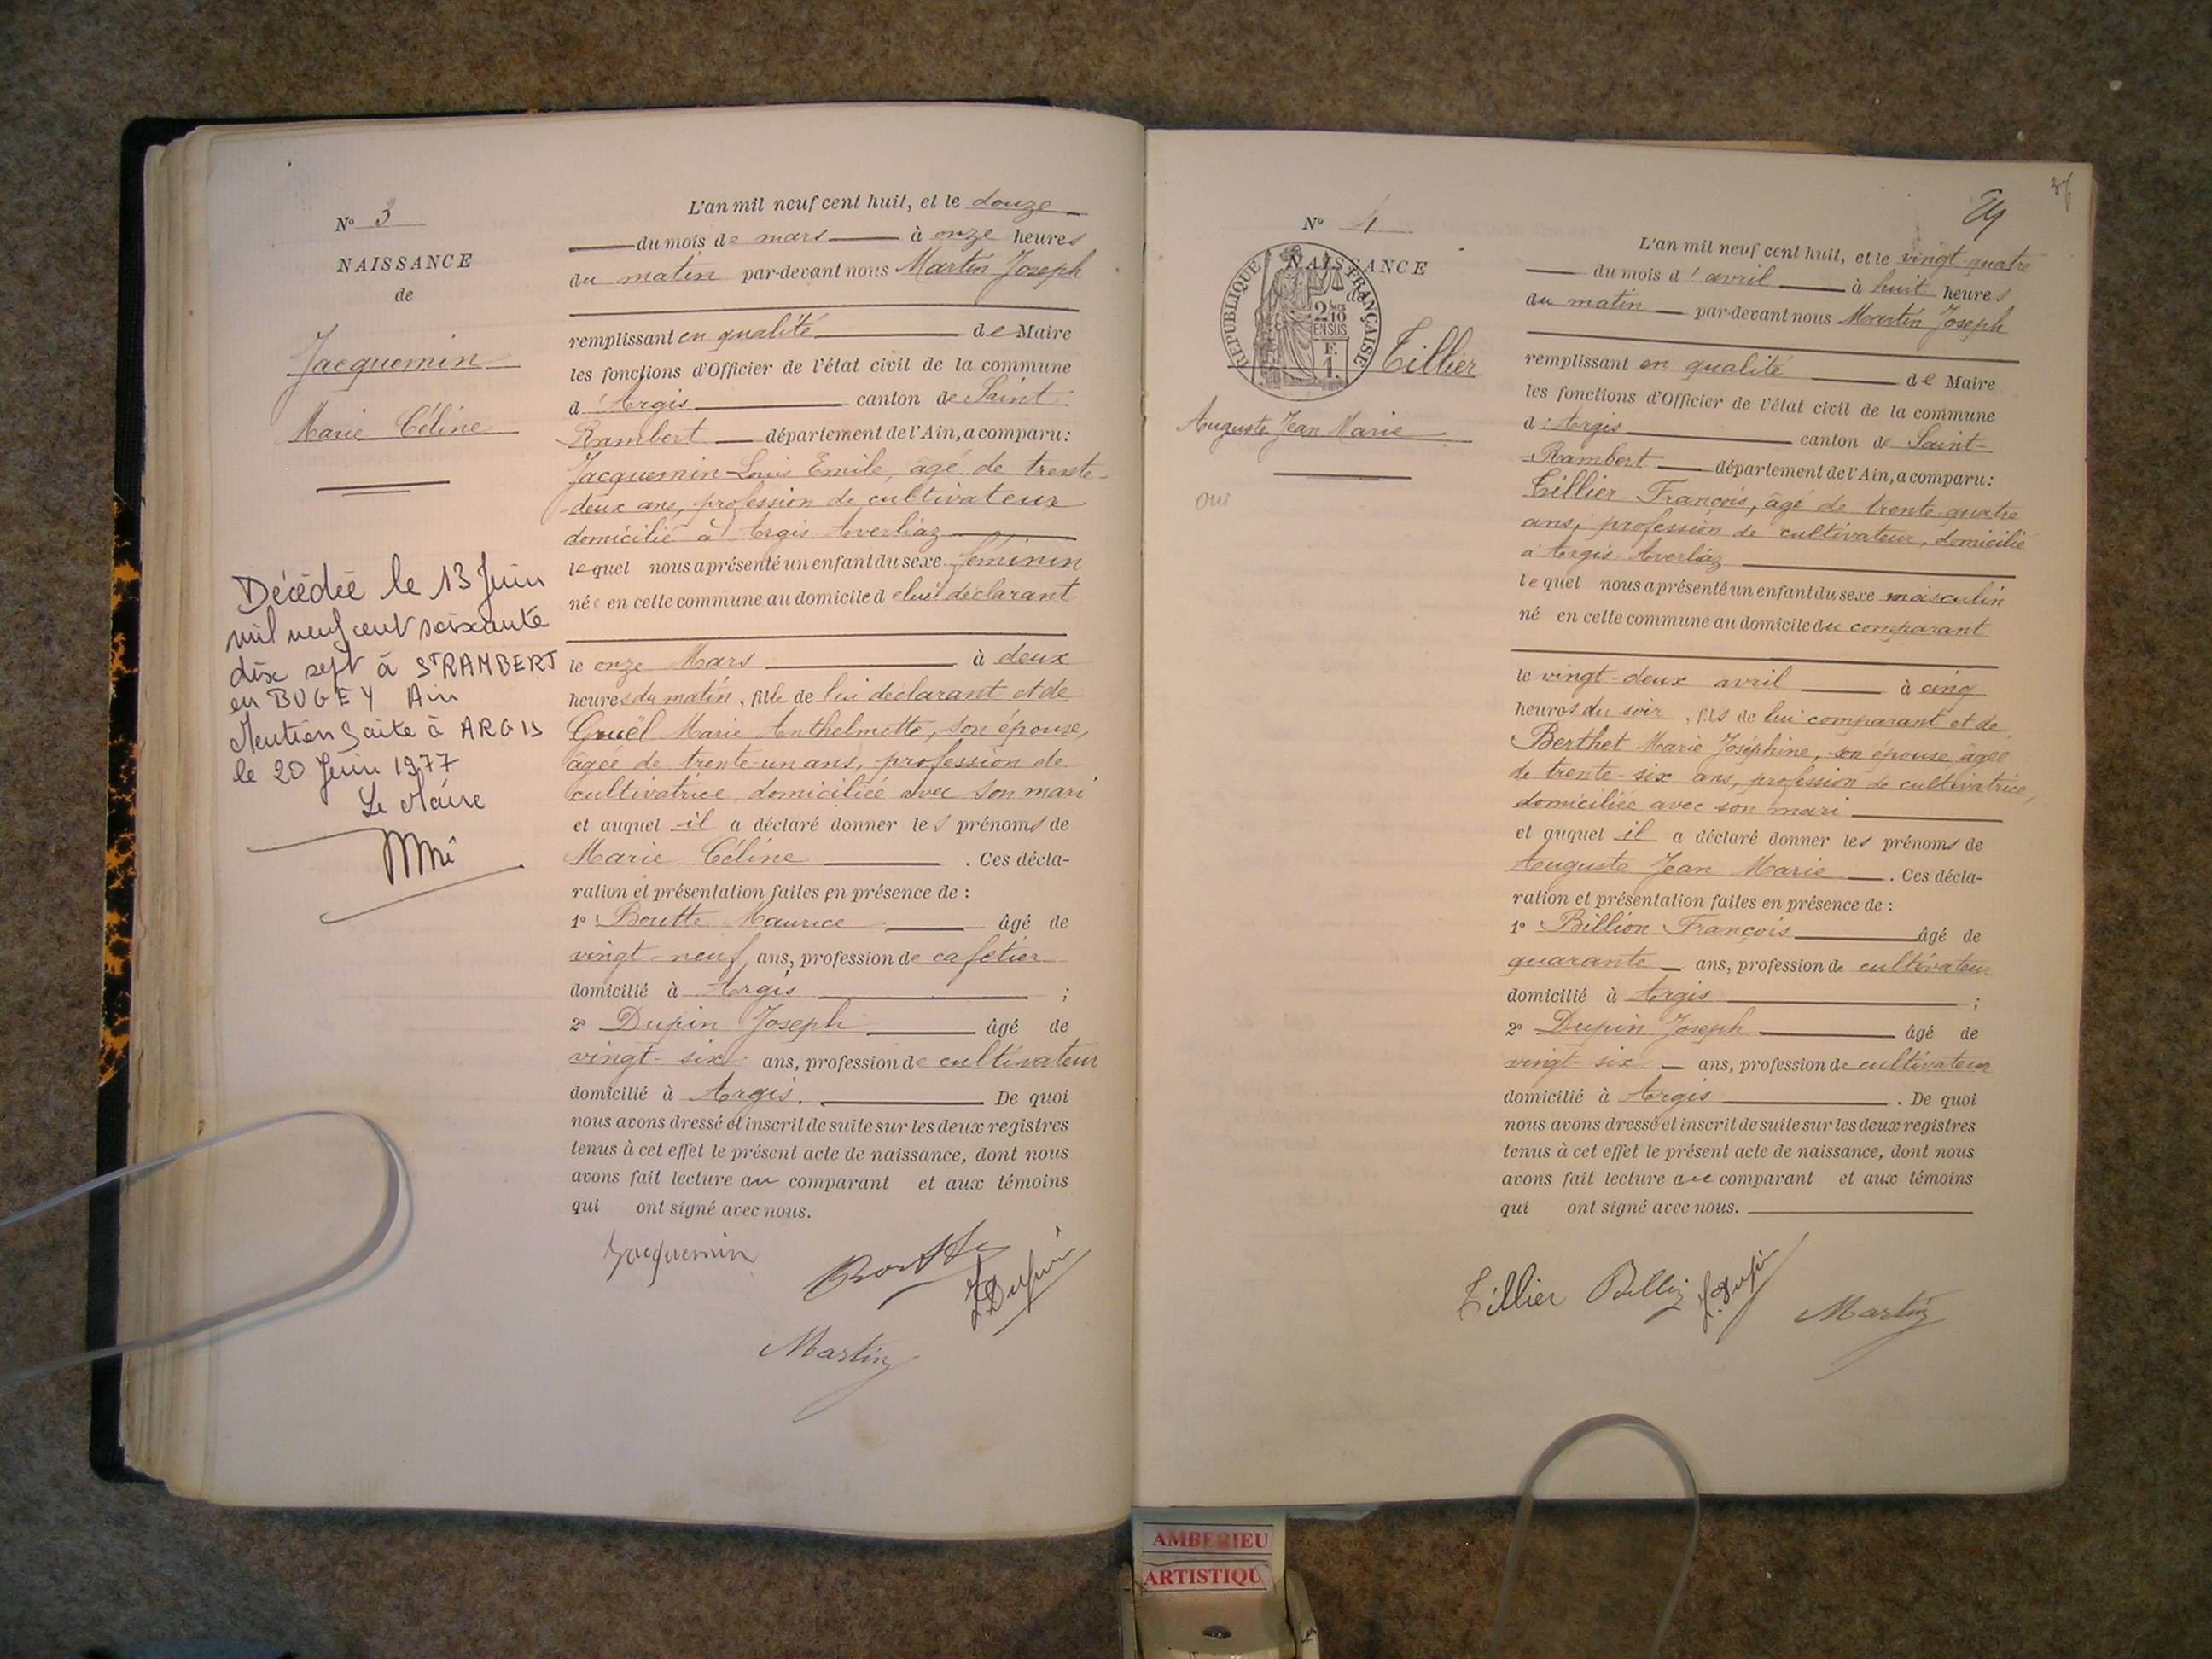 N° 3
NAISSANCE
de
Jacquemin
Marie Céline
Décédée le 13 Juin
mil neuf cent soixante
dix sept à ST RAMBERT
en BUGEY Ain
Mention faite à ARGIS
le 20 Juin 1977
Le Maire
L'an mil neuf cent huit, et le douze
du mois de mars à onze heures
du matin par-devant nous Martin Joseph
remplissant en qualité de Maire
les fonctions d'Officier de l'état civil de la commune
d'Argis canton de Saint
Rambert département de l'Ain, a comparu:
Jacquemin Louis Emile, âgé de trente-
deux ans, profession de cultivateur
domicilié à Argis Averliaz
lequel nous a présenté un enfant du sexe féminin
née en cette commune au domicile de lui déclarant
le onze Mars à deux
heures du matin, fille de lui déclarant et de
Gruël Marie Anthelmette, son épouse,
âgée de trente-un ans, profession de
cultivatrice, domiciliée avec son mari
et auquel il a déclaré donner les prénoms de
Marie Céline. Ces décla-
ration et présentation faites en présence de :
1° Boutte Maurice âgé de
vingt-neuf ans, profession de cafetier
domicilié à Argis ;
2° Dupin Joseph âgé de
vingt-six ans, profession de cultivateur
domicilié à Argis. De quoi
nous avons dressé et inscrit de suite sur les deux registres
tenus à cet effet le présent acte de naissance, dont nous
avons fait lecture au comparant et aux témoins
qui ont signé avec nous.
Jacquemin
Boutte
J. Dupin
Martin
24
N° 4
NAISSANCE
de
REPUBLIQUE FRANÇAISE
2/10
EN SUS
F.
1.
Tillier
Auguste Jean Marie
oui
L'an mil neuf cent huit, et le vingt-quatre
du mois d'avril à huit heures
du matin par-devant nous Martin Joseph
remplissant en qualité de Maire
les fonctions d'Officier de l'état civil de la commune
d'Argis canton de Saint-
Rambert département de l'Ain, a comparu:
Tillier François, âgé de trente-quatre
ans, profession de cultivateur, domicilié
à Argis Averliaz
lequel nous a présenté un enfant du sexe masculin
né en cette commune au domicile du comparant
le vingt-deux avril à cinq
heures du soir, fils de lui comparant et de
Berthet Marie Joséphine, son épouse âgée
de trente-six ans, profession de cultivatrice,
domiciliée avec son mari
et auquel il a déclaré donner les prénoms de
Auguste Jean Marie. Ces décla-
ration et présentation faites en présence de :
1° Billion François âgé de
quarante ans, profession de cultivateur
domicilié à Argis ;
2° Dupin Joseph âgé de
vingt-six ans, profession de cultivateur
domicilié à Argis. De quoi
nous avons dressé et inscrit de suite sur les deux registres
tenus à cet effet le présent acte de naissance, dont nous
avons fait lecture au comparant et aux témoins
qui ont signé avec nous.
Tillier
J. Dupin
Martin
AMBERIEU
ARTISTIQU